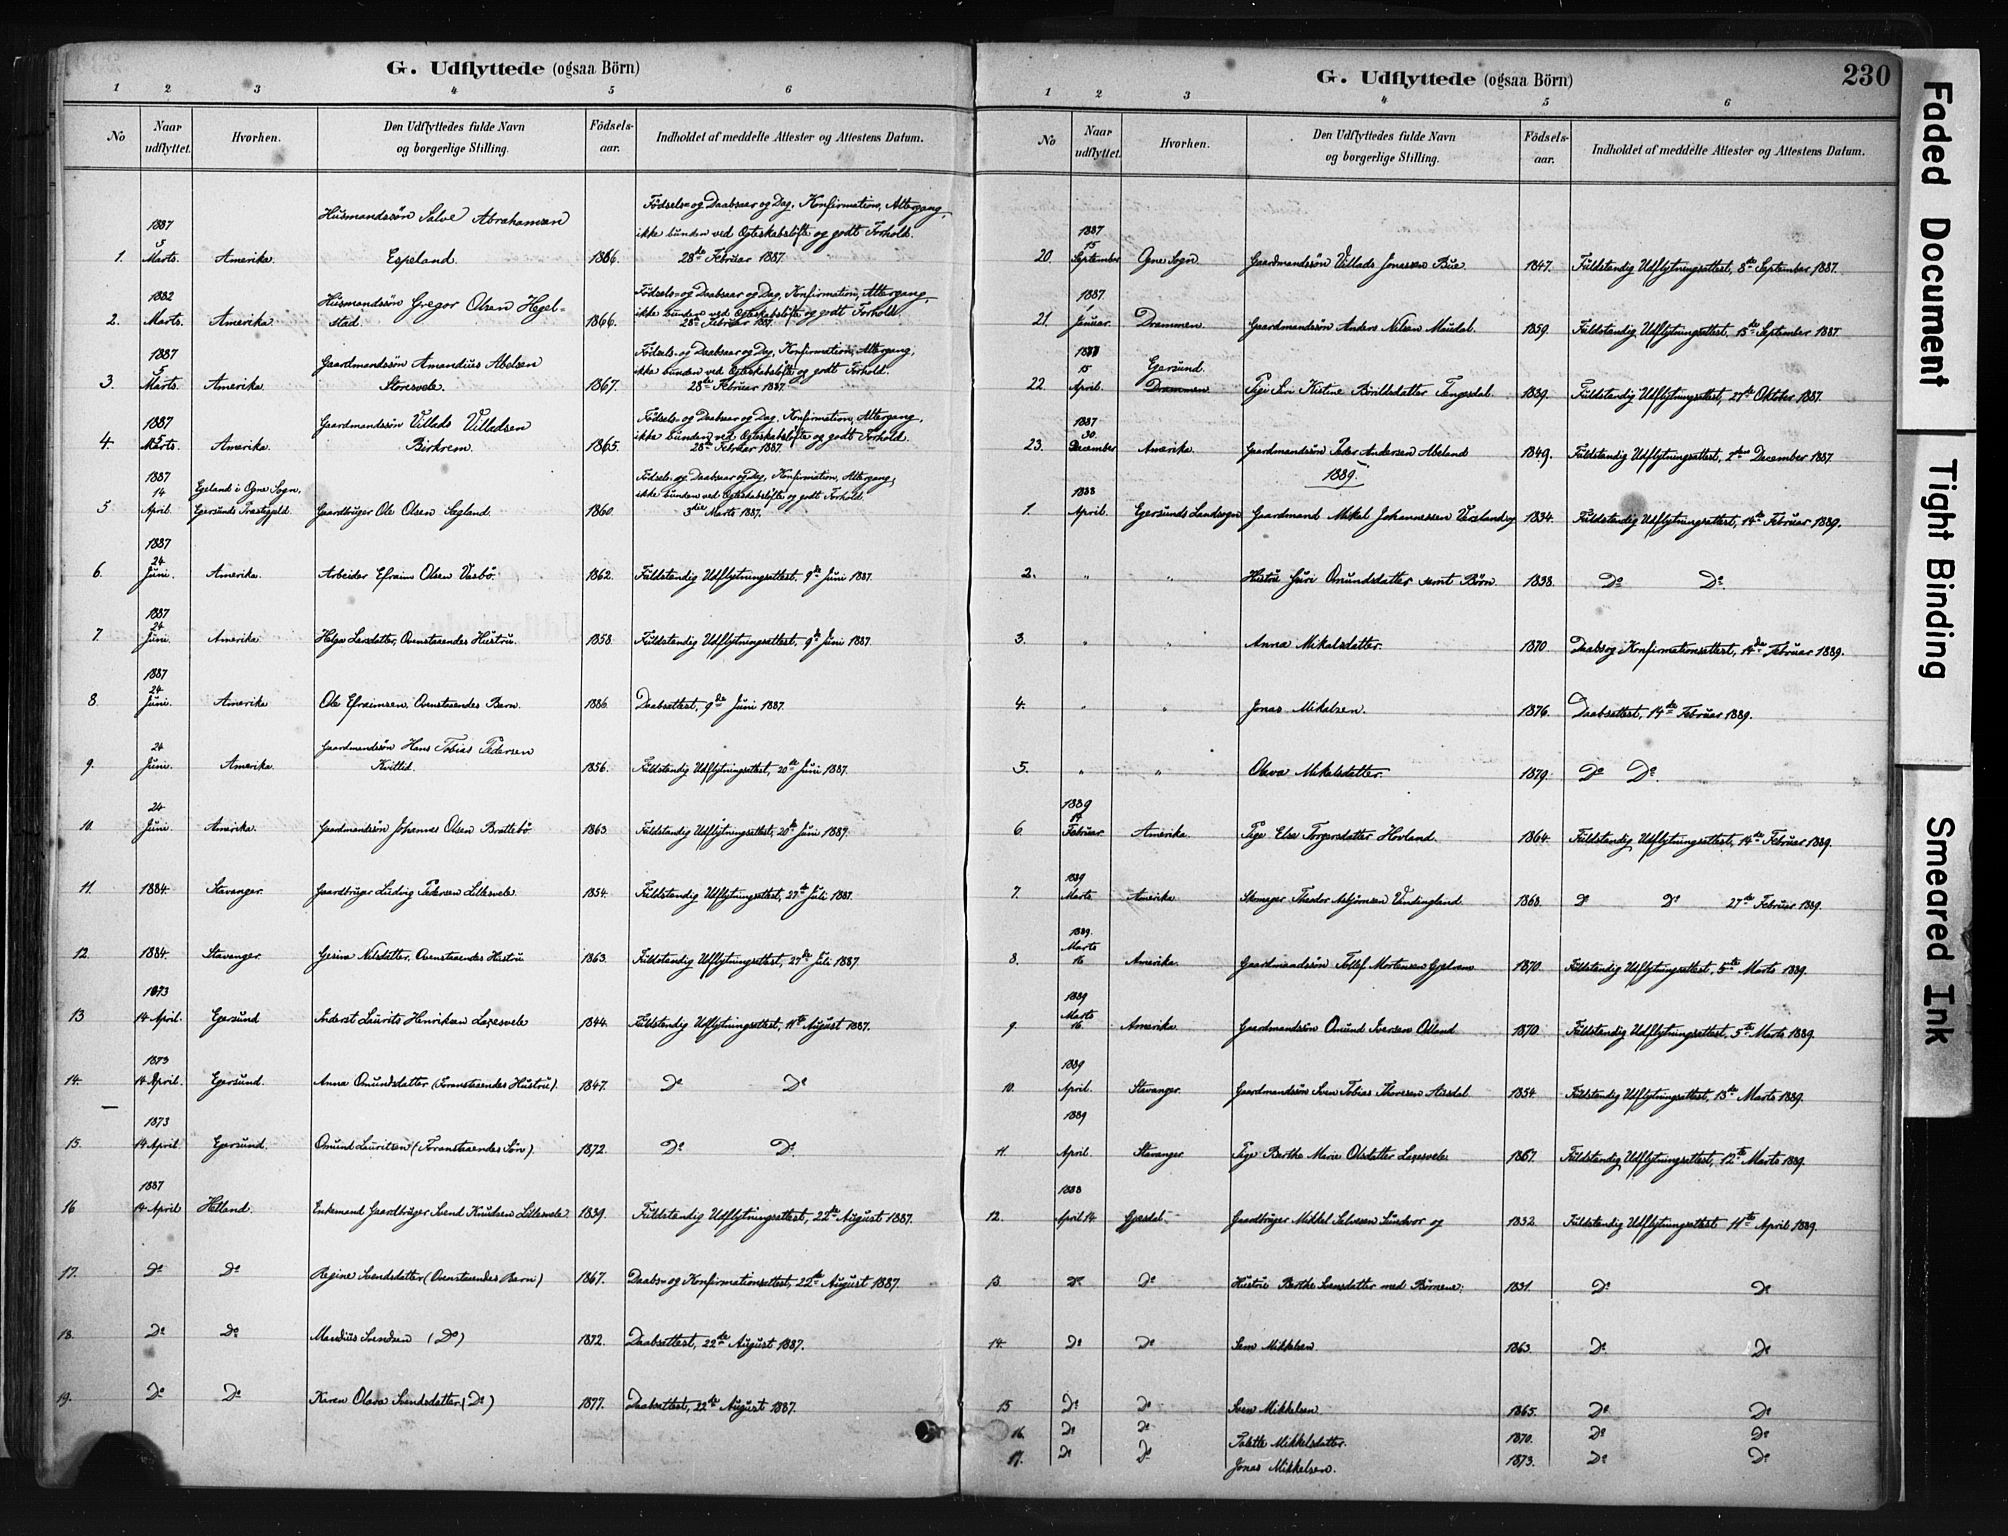 G. Udflyttede (ogsaa Börn)
1 2 3 4 5 6
No Naar udflyttet. Hvorhen. Den Udflyttedes fulde Navn og borgerlige Stilling. Födsels-aar. Indholdet af meddelte Attester og Attestens Datum.
1887 Husmandssøn Salve Abrahamsen Födsels- og Daabsaar og Dag, Konfirmation, Altergang,
5 ikke bunden ved Egteskabsløfte og godt Forhold.
1. Marts. Amerika. Espeland. 1866. 28de Februar 1887.
1882 Husmandssøn Gregor Olsen Hegel- Fødsels- og Daabsaar og Dag, Konfirmation, Altergang,
ikke bunden ved Egteskabsløfte og godt Forhold.
2. Marts. Amerika. stad. 1866. 28de Februar 1887.
1887 Gaardmandssøn Amandius Abelsen Fødsels- og Daabsaar og Dag, Konfirmation, Altergang,
5 ikke bunden ved Egteskabsløfte og godt Forhold.
3. Marts. Amerika. Storesvele. 1867. 28de Februar 1887.
1887 Gaardmandssøn Villads Villadsen Fødsels- og Daabsaar og Dag, Konfirmation, Altergang,
5 ikke bunden ved Egteskabsløfte og godt Forhold.
4. Marts. Amerika. Birkrem. 1865. 28de Februar 1887.
1887 Egeland i Ogne Sogn, Fødsels- og Daabsaar og Dag, Konfirmation, Altergang,
14 ikke bunden ved Egteskabsløfte og godt Forhold.
5 April. Egersunds Præstegjeld. Gaardbruger Ole Olsen 1860. 3die Marts 1887.
1887
24
6. Juni. Amerika. Arbeider Efraim Olsen Vasbø. 1862. Fuldstendig Udflytningsattest, 9de Juni 1887.
1887
24
7. Juni. Amerika. Helga Larsdatter, Ovenstaaendes Hustru. 1858. Fuldstendig Udflytningsattest, 9de Juni 1887.
1887
24
8. Juni. Amerika. Ole Efraimsen, Ovenstaaendes Barn. 1886. Daabsattest, 9de Juni 1887.
24 Gaardmandssøn Hans Tobias Pedersen
9. Juni. Amerika. Kvitlid. 1856. Fuldstendig Udflytningsattest, 20de Juni 1887.
24
10. Juni. Amerika. Gaardmandssøn Johannes Olsen Brattebø. 1863. Fuldstendig Udflytningsattest, 20de Juni 1887.
11. 1884. Stavanger. Gaardbruger Ludvig Pedersen Lillesvele. 1854. Fuldstendig Udflytningsattest, 27de Juli 1887.
12. 1884. Stavanger. Gesine Nilsdatter, Ovenstaaendes Hustru. 1863. Fuldstendig Udflytningsattest, 27de Juli 1887.
1873
13 14 April. Egersund Inderst Laurits Henriksen Laxesvele 1844. Fuldstendig Udflytningsattest, 11te August 1887.
1873
14. 14 April. Egersund. Anna Omundsdatter (Foranstaaendes Hustru). 1847. Do Do
1873
15. 14 April Egersund. Omund Lauritsen (Foranstaaendes Søn). 1872. Do Do.
1887
16 14 April Helland. Enkemand Gaardbruger Svend Knudsen Lillesvele. 1839. Fuldstendig Udflytningsattest, 22de August 1887.
17. Do Do Regine Svendsdatter (Ovenstaaendes Barn) 1867. Daabs- og Konfirmationsattest, 22de August 1887.
18. Do Do Mandius Svendsen (Do) 1872. Daabsattest, 22de August 1887.
19. Do Do Karen Olava Svendsdatter (Do) 1877. Daabsattest, 22de August 1887.
G. Udflyttede (ogsaa Börn) 230
1 2 3 4 5 6
No Naar udflyttet. Hvorhen. Den Udflyttedes fulde Navn og borgerlige Stilling. Födsels-aar. Indholdet af meddelte Attester og Attestens Datum.
1887
15
20. September Ogne Sogn. Gaardmandssøn Villads Jonassen Bue. 1847. Fuldstendig Udflytningsattest, 8de September 1887.
1887.
1
21. Januar. Drammen. Gaardmandssøn Anders Nilsen Maudal. 1859. Fuldstendig Udflytningsattest, 15de September 1887.
15 Egersund.
22 April. Drammen Pige Siri Kistine Tengesdal 1889. Fuldstendig Udflytningsattest, 27de Oktober 1887.
1887
30.
23. December Amerika. Gaardmandssøn Peder Andersen Abeland 1849. Fuldstendig Udflytningsattest, December 1887
1889.
1888
1. April. Egersunds Landsogn Gaardmand Mikal Johannessen og 1834. Fuldstendig Udflytningsattest, 14de Februar 1889.
2. " " Hustru Guri Omundsdatter samt Børn. 1838. Do Do.
3. " " Anna Mikalsdatter. 1870 Daabs og Konfirmationsattest, 14de Februar 1889.
4. " " Jonas Mikalsen. 1876. Daabsattest, 14de Februar 1889.
5. " " Olava Mikalsdatter. 1879. Do Do.
1889
14
6. Februar. Amerika. Pige Elsa Torgersdatter Hovland. 1864. Fuldstendig Udflytningsattest, 14de Februar 1889.
1889
7. Marts Amerika. Skomager Theodor Asbjørnsen Vindingland. 1868. Do Do 27de Februar 1889.
1889.
Marts
8. 16 Amerika. Gaardmandssøn Tollef Mortensen Gjedrem 1870. Fuldstendig Udflytningsattest, 5te Marts 1889.
1889
Marts
9. 16. Amerika. Gaardmandssøn Omund Iversen Odland 1870. Fuldstendig Udflytningsattest, 5te Marts 1889.
1889
10. April. Stavanger. Gaardmandssøn Sven Tobias Thoresen Austdal. 1854. Fuldstendig Udflytningsattest, 13de Marts 1889.
1889
11. April. Stavanger Pige Berthe Marie Olsdatter Laxesvele 1867. Fuldstendig Udflytningsattest, 12te Marts 1889.
1888
12. April 14 Gjesdal. Gaardbruger Mikkel Salvesen Sundvor og 1832. Fuldstendig Udflytningsattest 11te April 1889.
13. Do Do Hustru Berthe Svensdatter med Børnene: 1831. Do Do
14. Do Do Sem Mikkelsen. 1863. Do. Do
15 Do Do Sven Mikkelsen. 1865. Do Do
16. Do Do Tolette Mikkelsdatter. 1870. Do Do
17. Do Do Jonas Mikkelsen. 1873. Do Do
Faded Document
Tight Binding
Smeared Ink